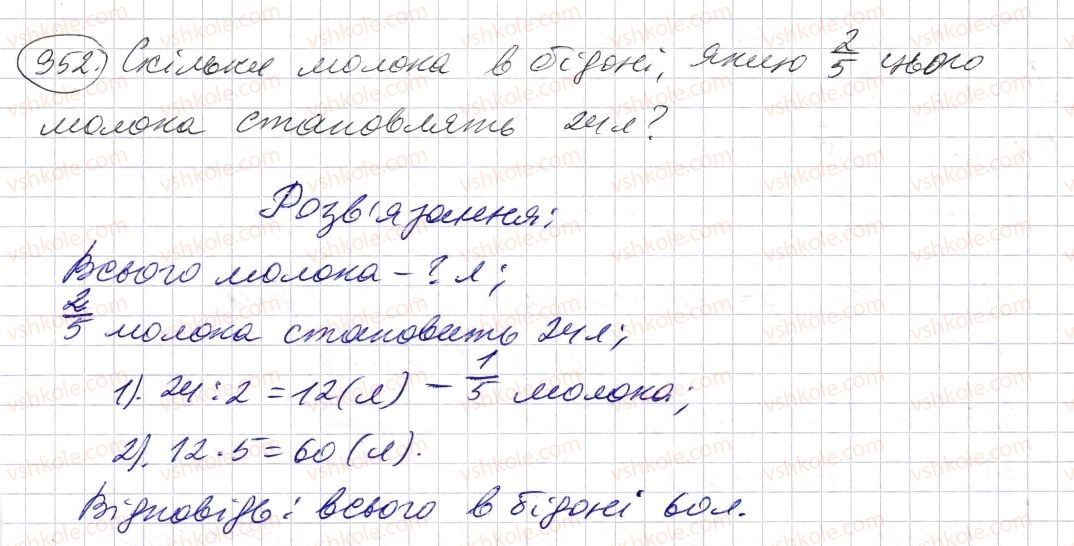 952. Скільки молока в бідоні, якщо 2/5 цього
молока становлять 24л?
Розв'язання:
Всього молока – ? л;
2/5 молока становить 24л;
1). 24 : 2 = 12(л) – 1/5 молока;
2). 12 · 5 = 60 (л).
Відповідь: всього в бідоні 60л.
vshkole.com